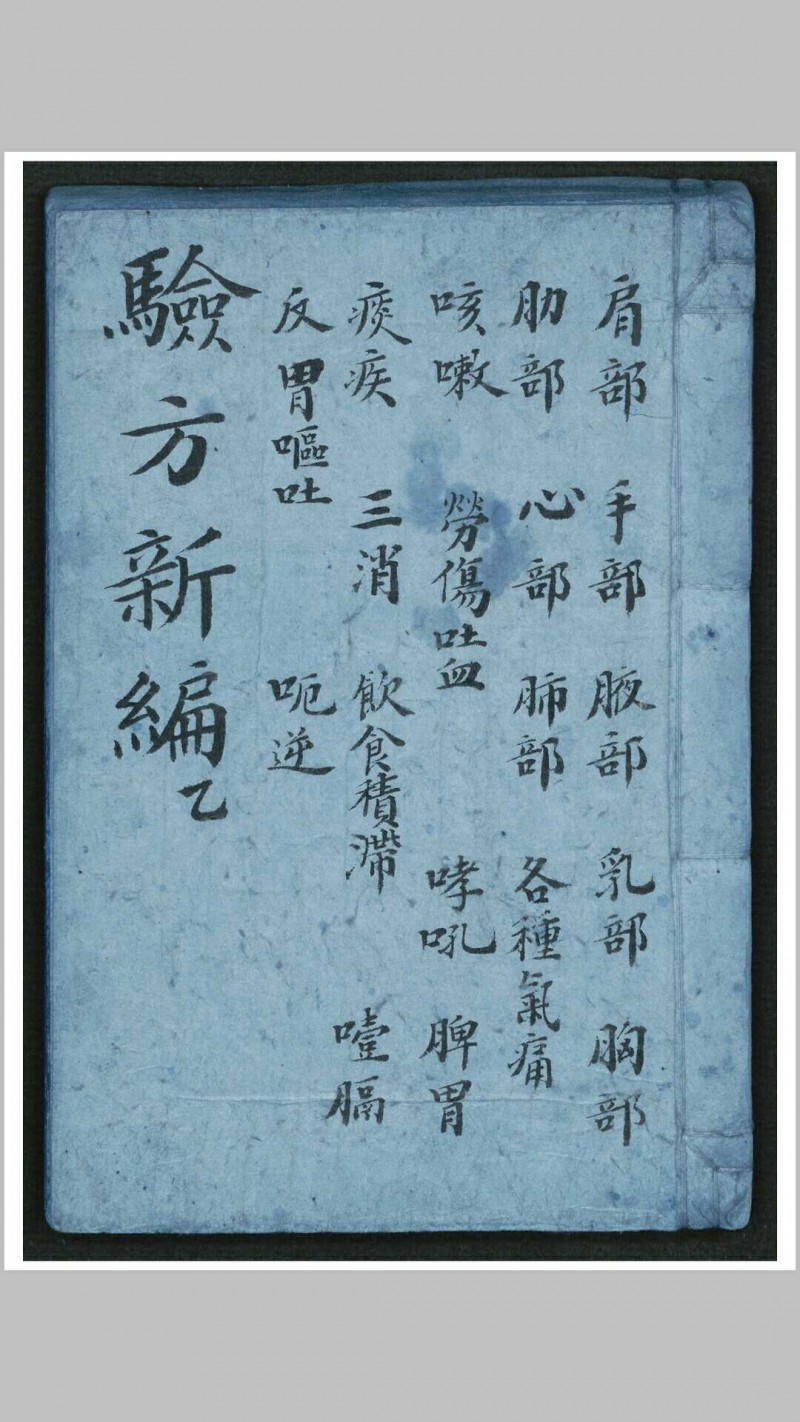 肩部 手部 腋部 乳部 胸部
肋部 心部 肺部 各種氣痛
咳嗽 勞傷吐血 哮吼 脾胃
痰疾 三消 飲食積滯 噎膈
反胃嘔吐 呃逆
驗方新編 乙